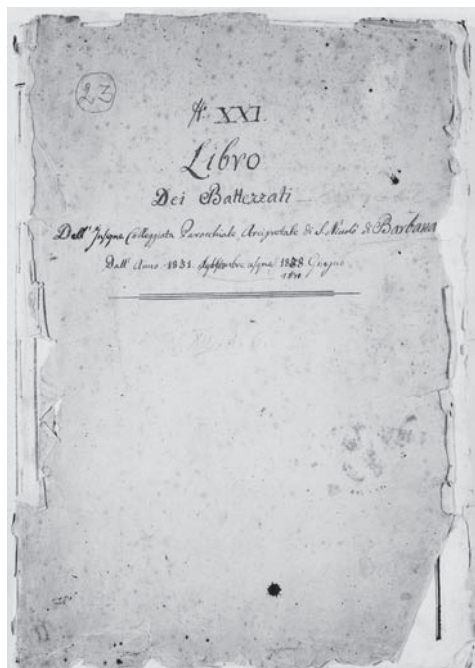 23
N. XXI.
Libro
Dei Battezzati
Dell' Insigne Colleggiata Parocchiale Arcipretale di S. Nicolò di Barbana
Dall' Anno 1831. Settembre a Giugno